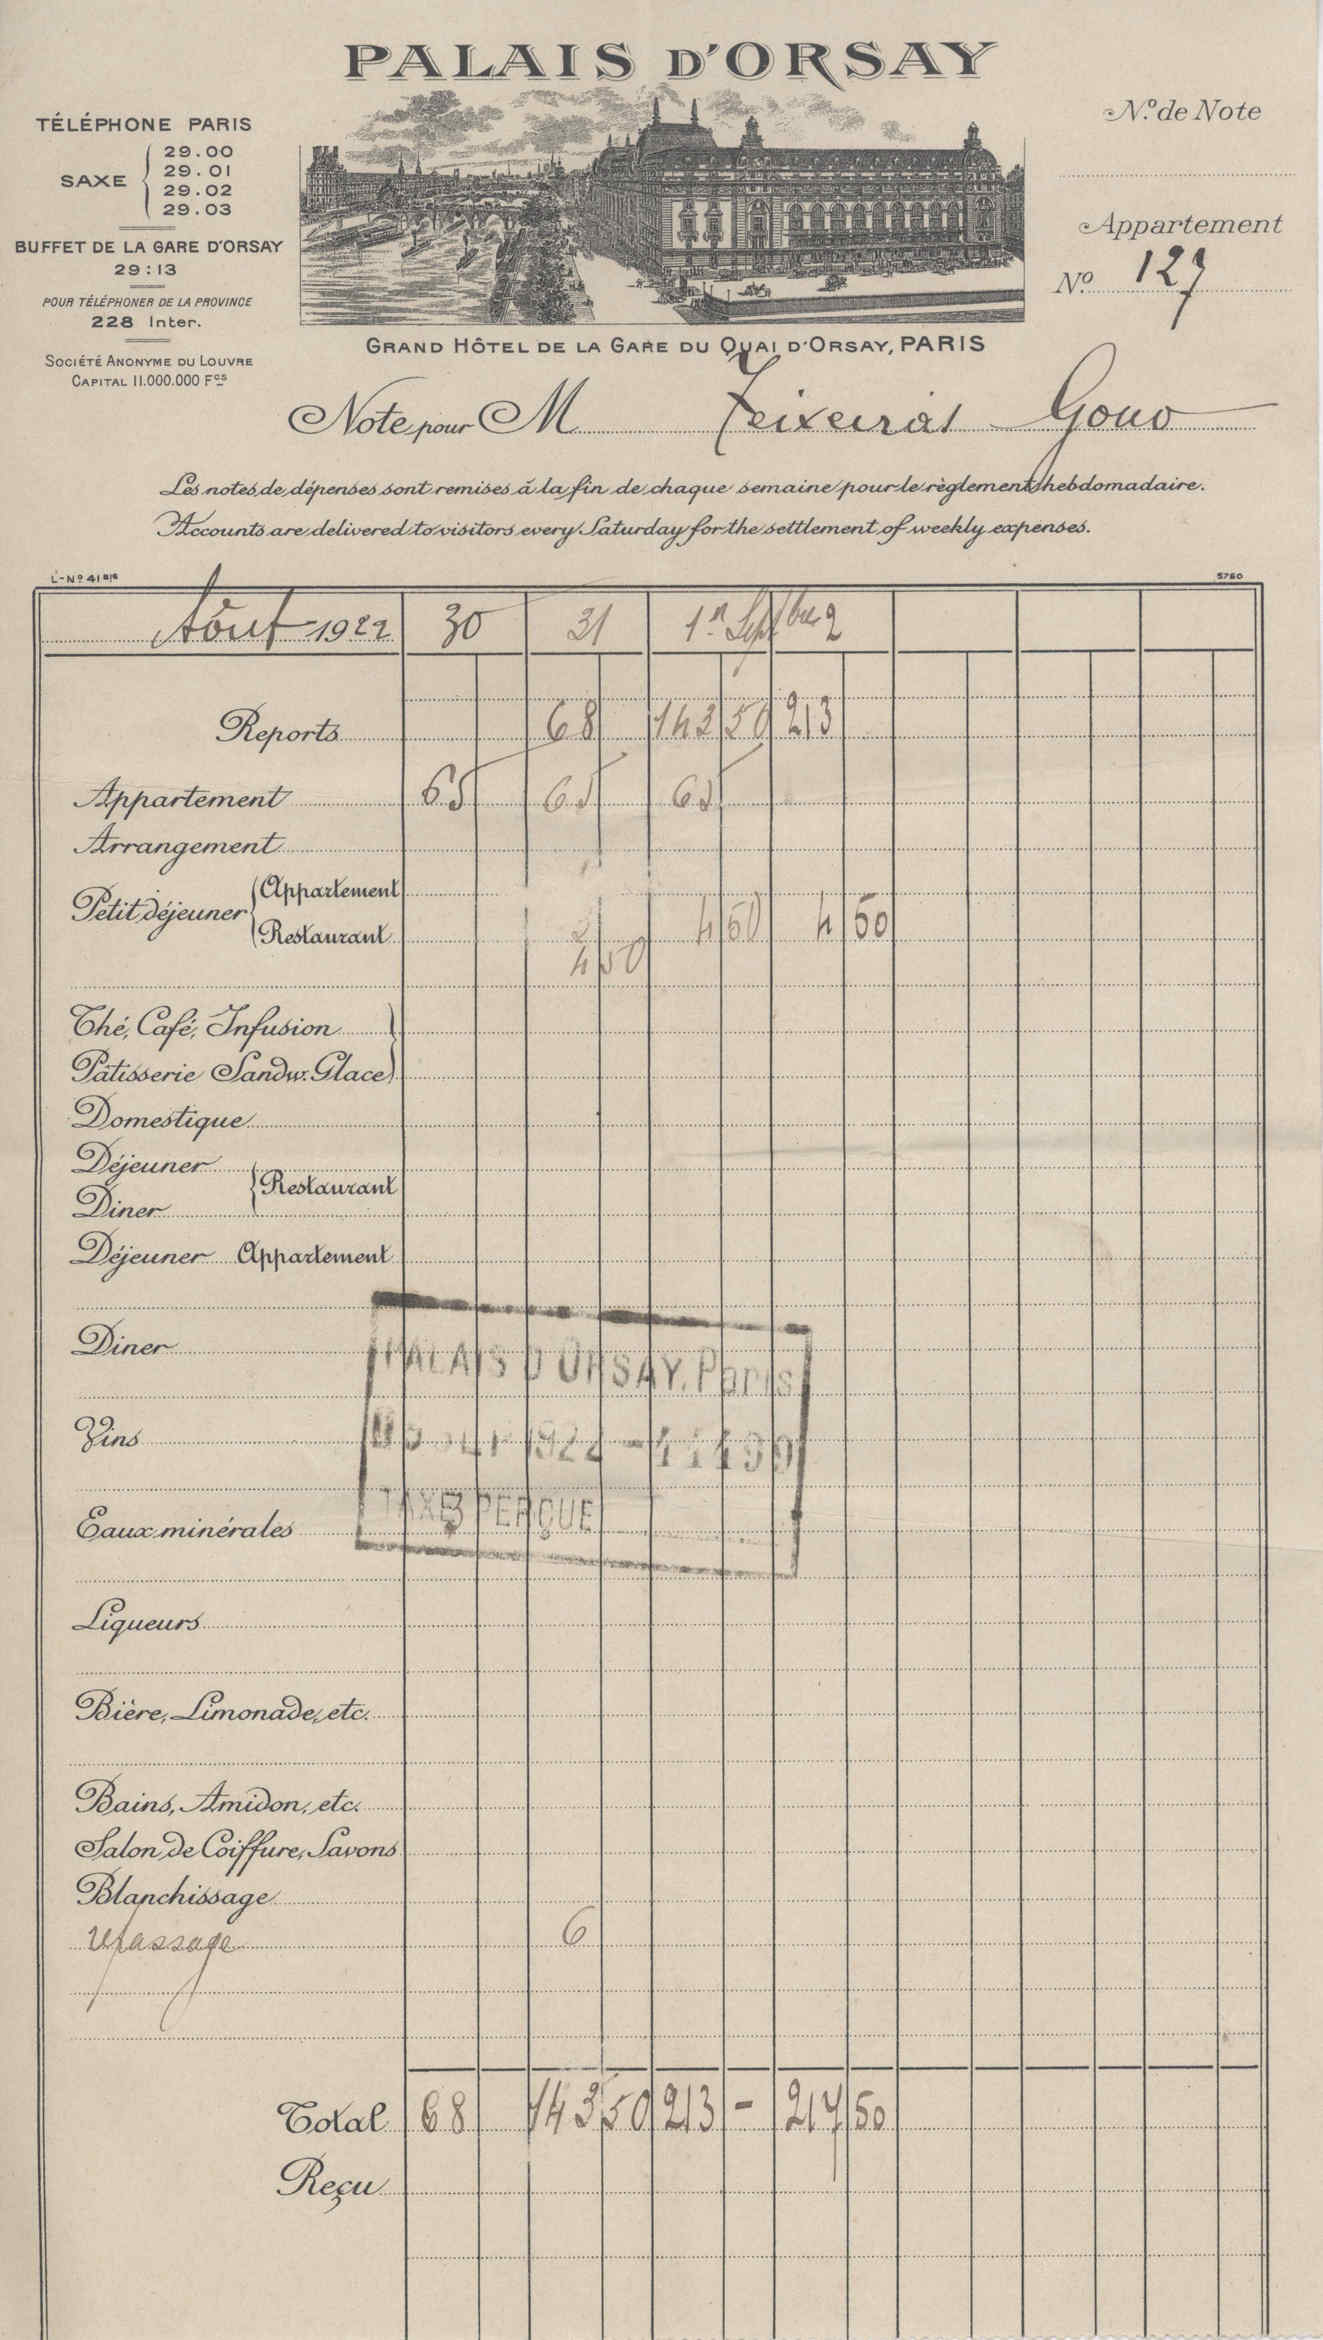 PALAIS D'ORSAY
TÉLÉPHONE PARIS
SAXE
29.00
29.01
29.02
29.03
BUFFET DE LA GARE D'ORSAY
29:13
POUR TÉLÉPHONER DE LA PROVINCE
228 Inter.
SOCIÉTÉ ANONYME DU LOUVRE
CAPITAL 11.000.000 Fcs
N.º de Note
Appartement
Nº 127
GRAND HÔTEL DE LA GARE DU QUAI D'ORSAY, PARIS
Note pour M Teixeira
Les notes de dépenses sont remises à la fin de chaque semaine pour le règlement hebdomadaire.
Accounts are delivered to visitors every Saturday for the settlement of weekly expenses.
L-Nº 41 bis 5760
Aôut 1922 30 31 1er Septbre 2
Reports 68 143 50 213
Appartement 65 65 65
Arrangement
Petit déjeuner Appartement
Restaurant 4 50 4 50
4 50
Thé, Café, Infusion
Pâtisserie Sandw. Glace
Domestique
Déjeuner Restaurant
Diner
Déjeuner Appartement
Diner
PALAIS D'ORSAY, Paris
Vins
1922
Eaux minérales
TAXE PERÇUE
Liqueurs
Bière, Limonade, etc.
Bains, Amidon, etc.
Salon de Coiffure, Savons
Blanchissage
repassage 6
Total 68 143 50 213 - 217 50
Reçu